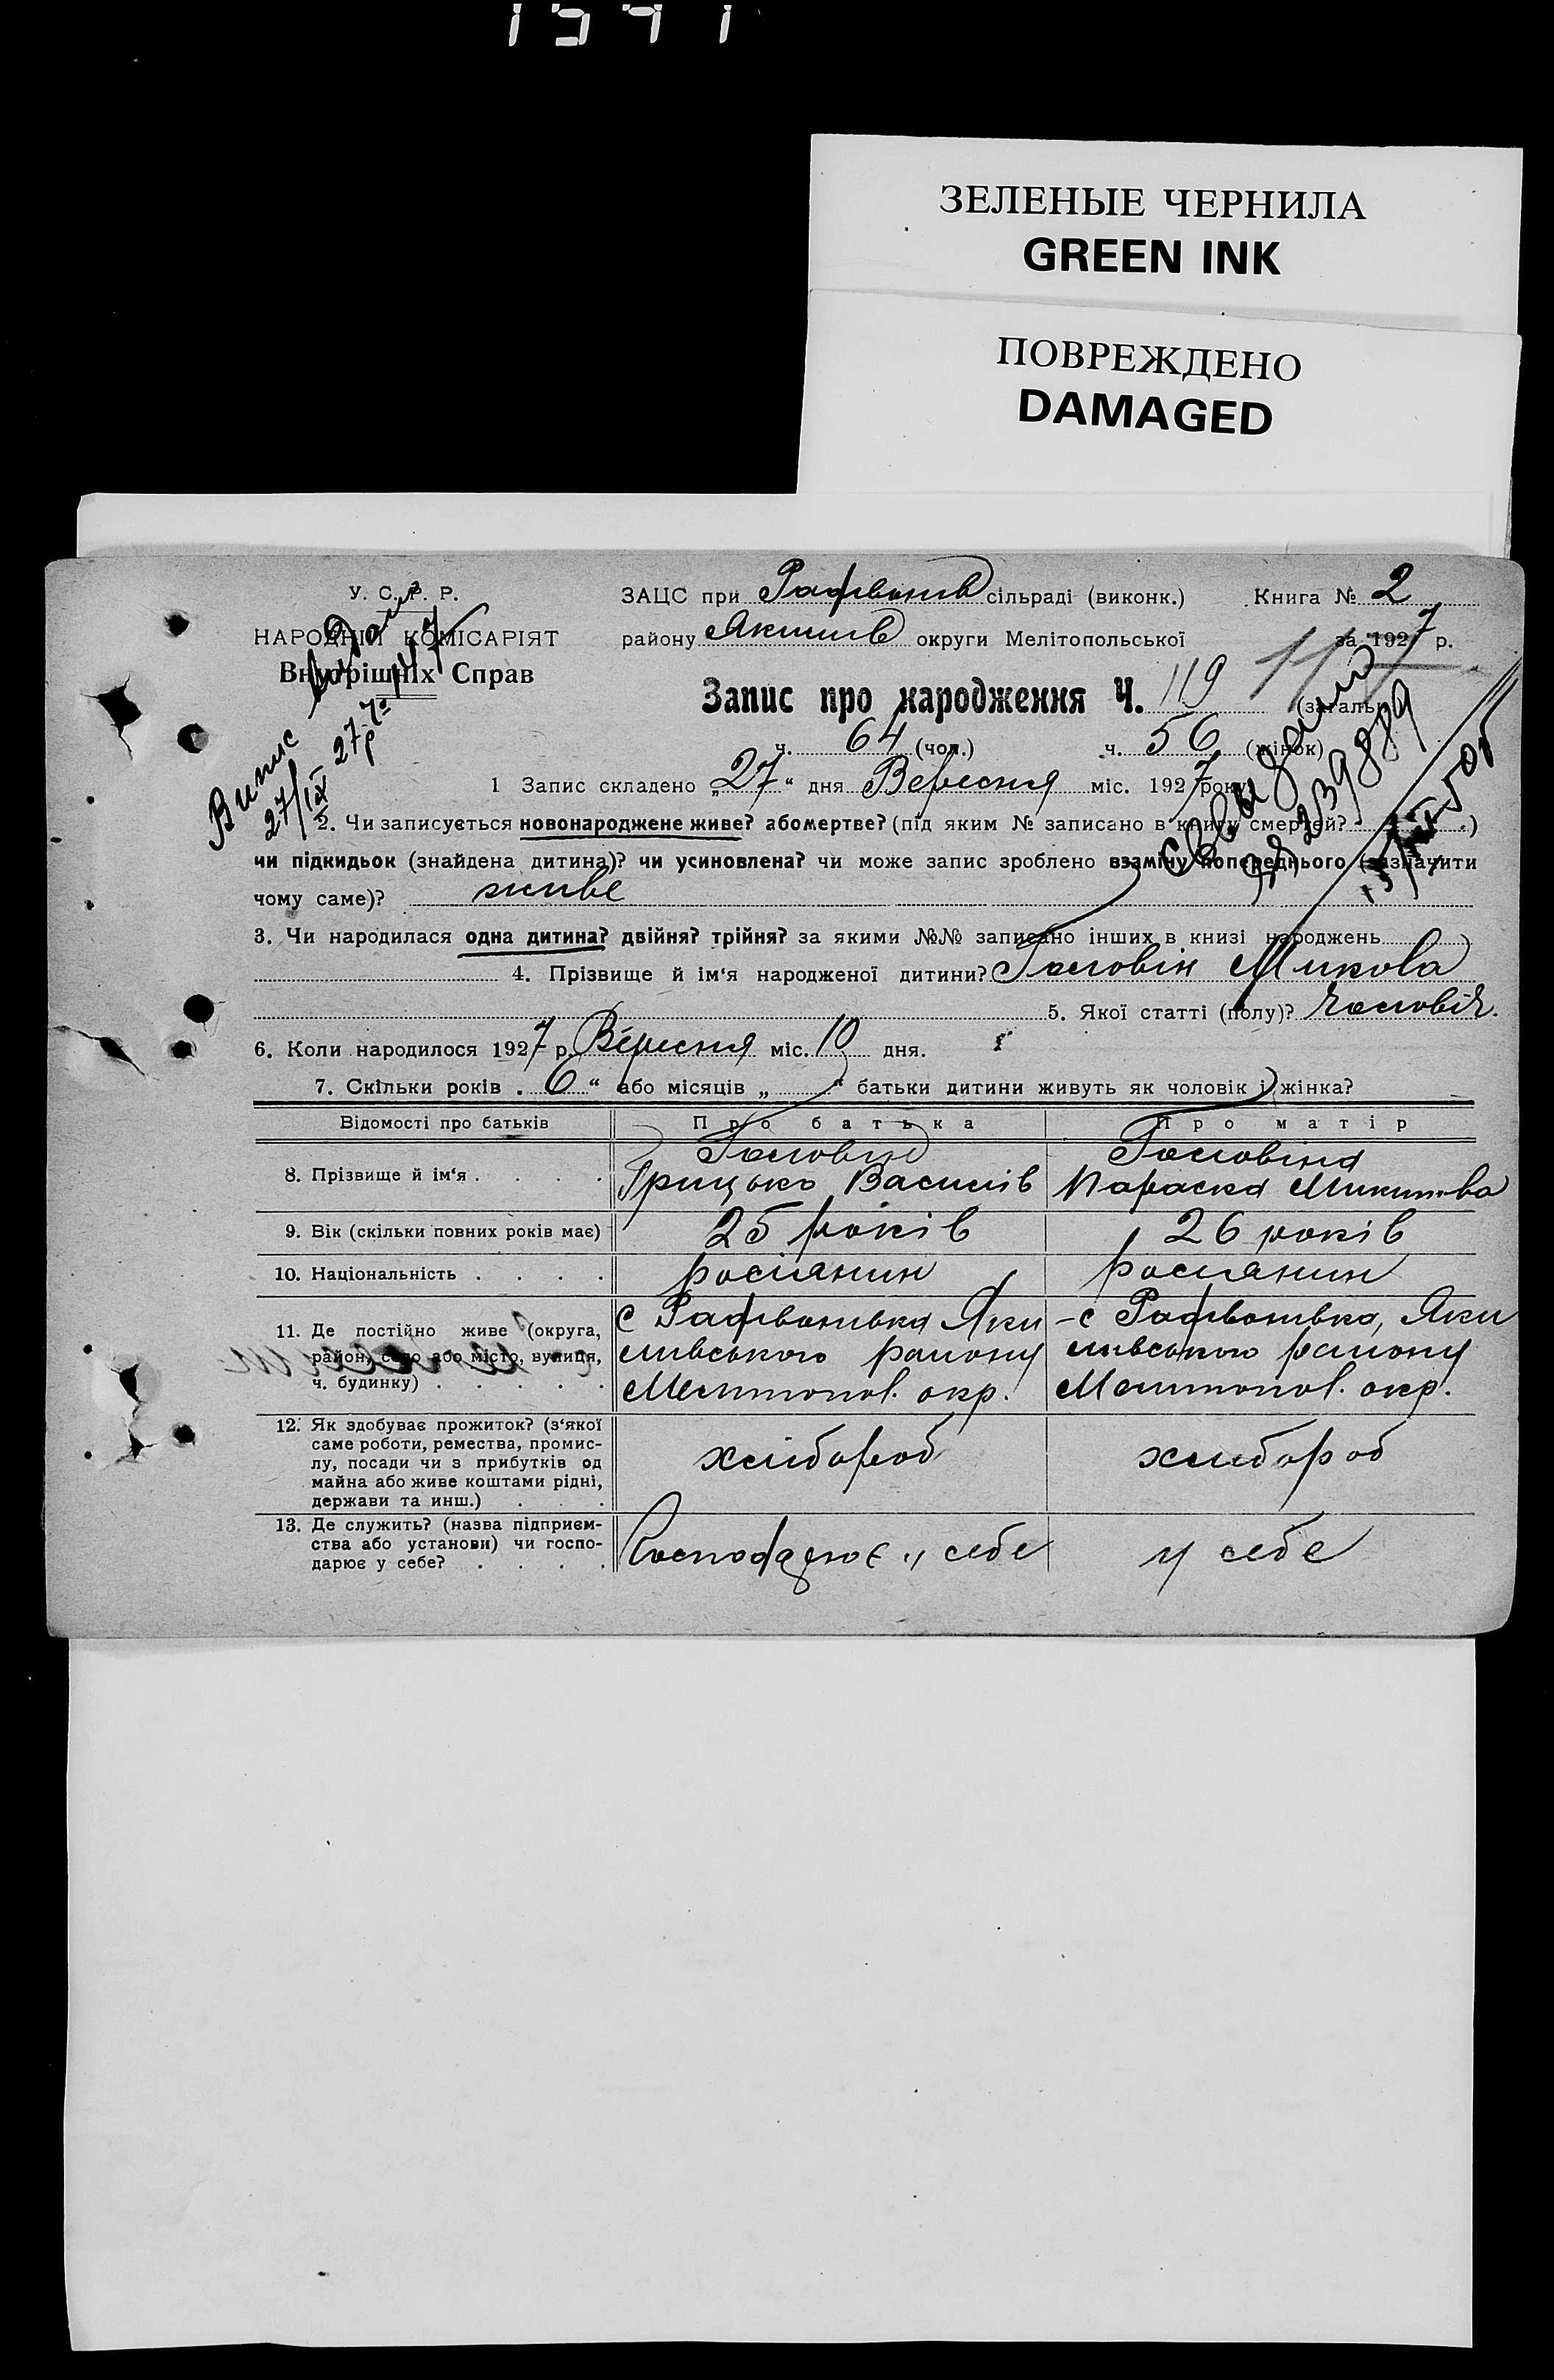 1541
ЗЕЛЕНЫЕ ЧЕРНИЛА
GREEN INK
ПОВРЕЖДЕНО
DAMAGED
У. С. Р. Р.
НАРОДНІЙ КОМІСАРІЯТ
Внутрішніх Справ
Випис видано
27/IX 27 р.
ЗАЦС при сільраді (виконк.) Книга № 2
району Якимів округи Мелітопольської за 1927 р.
Запис про народження Ч. 119 (загальн.)
ч. 64 (чол.) ч. 56 (жінок)
1 Запис складено „27“ дня Вересня міс. 1927 року
2. Чи записується новонароджене живе? або мертве? (під яким № записано в книгу смертей? )
чи підкидьок (знайдена дитина)? чи усиновлена? чи може запис зроблено взаміну попереднього (зазначити
чому саме)? живе
3. Чи народилася одна дитина? двійня? трійня? за якими №№ записано інших в книзі народжень
4. Прізвище й ім‘я народженої дитини? Головін Микола
5. Якої статті (полу)? чоловіч.
6. Коли народилося 1927 р. Вересня міс. 10 дня.
7. Скільки років „6“ або місяців „ “ батьки дитини живуть як чоловік і жінка?
Відомості про батьків Про батька Про матір
8. Прізвище й ім‘я Головін Грицько Василів Головіна Параска
9. Вік (скільки повних років має) 25 років 26 років
10. Національність росіянин росіянин
11. Де постійно живе (округа,
район, село або місто, вулиця,
ч. будинку)
мивського району мивського району
Мелитопол. окр. Мелитопол. окр.
12. Як здобуває прожиток? (з‘якої
саме роботи, ремества, промис-
лу, посади чи з прибутків од
майна або живе коштами рідні,
держави та инш.) хлібороб хлібороб
13. Де служить? (назва підприєм-
ства або установи) чи госпо-
дарює у себе? Господарює у себе у себе
Св выдано
239889